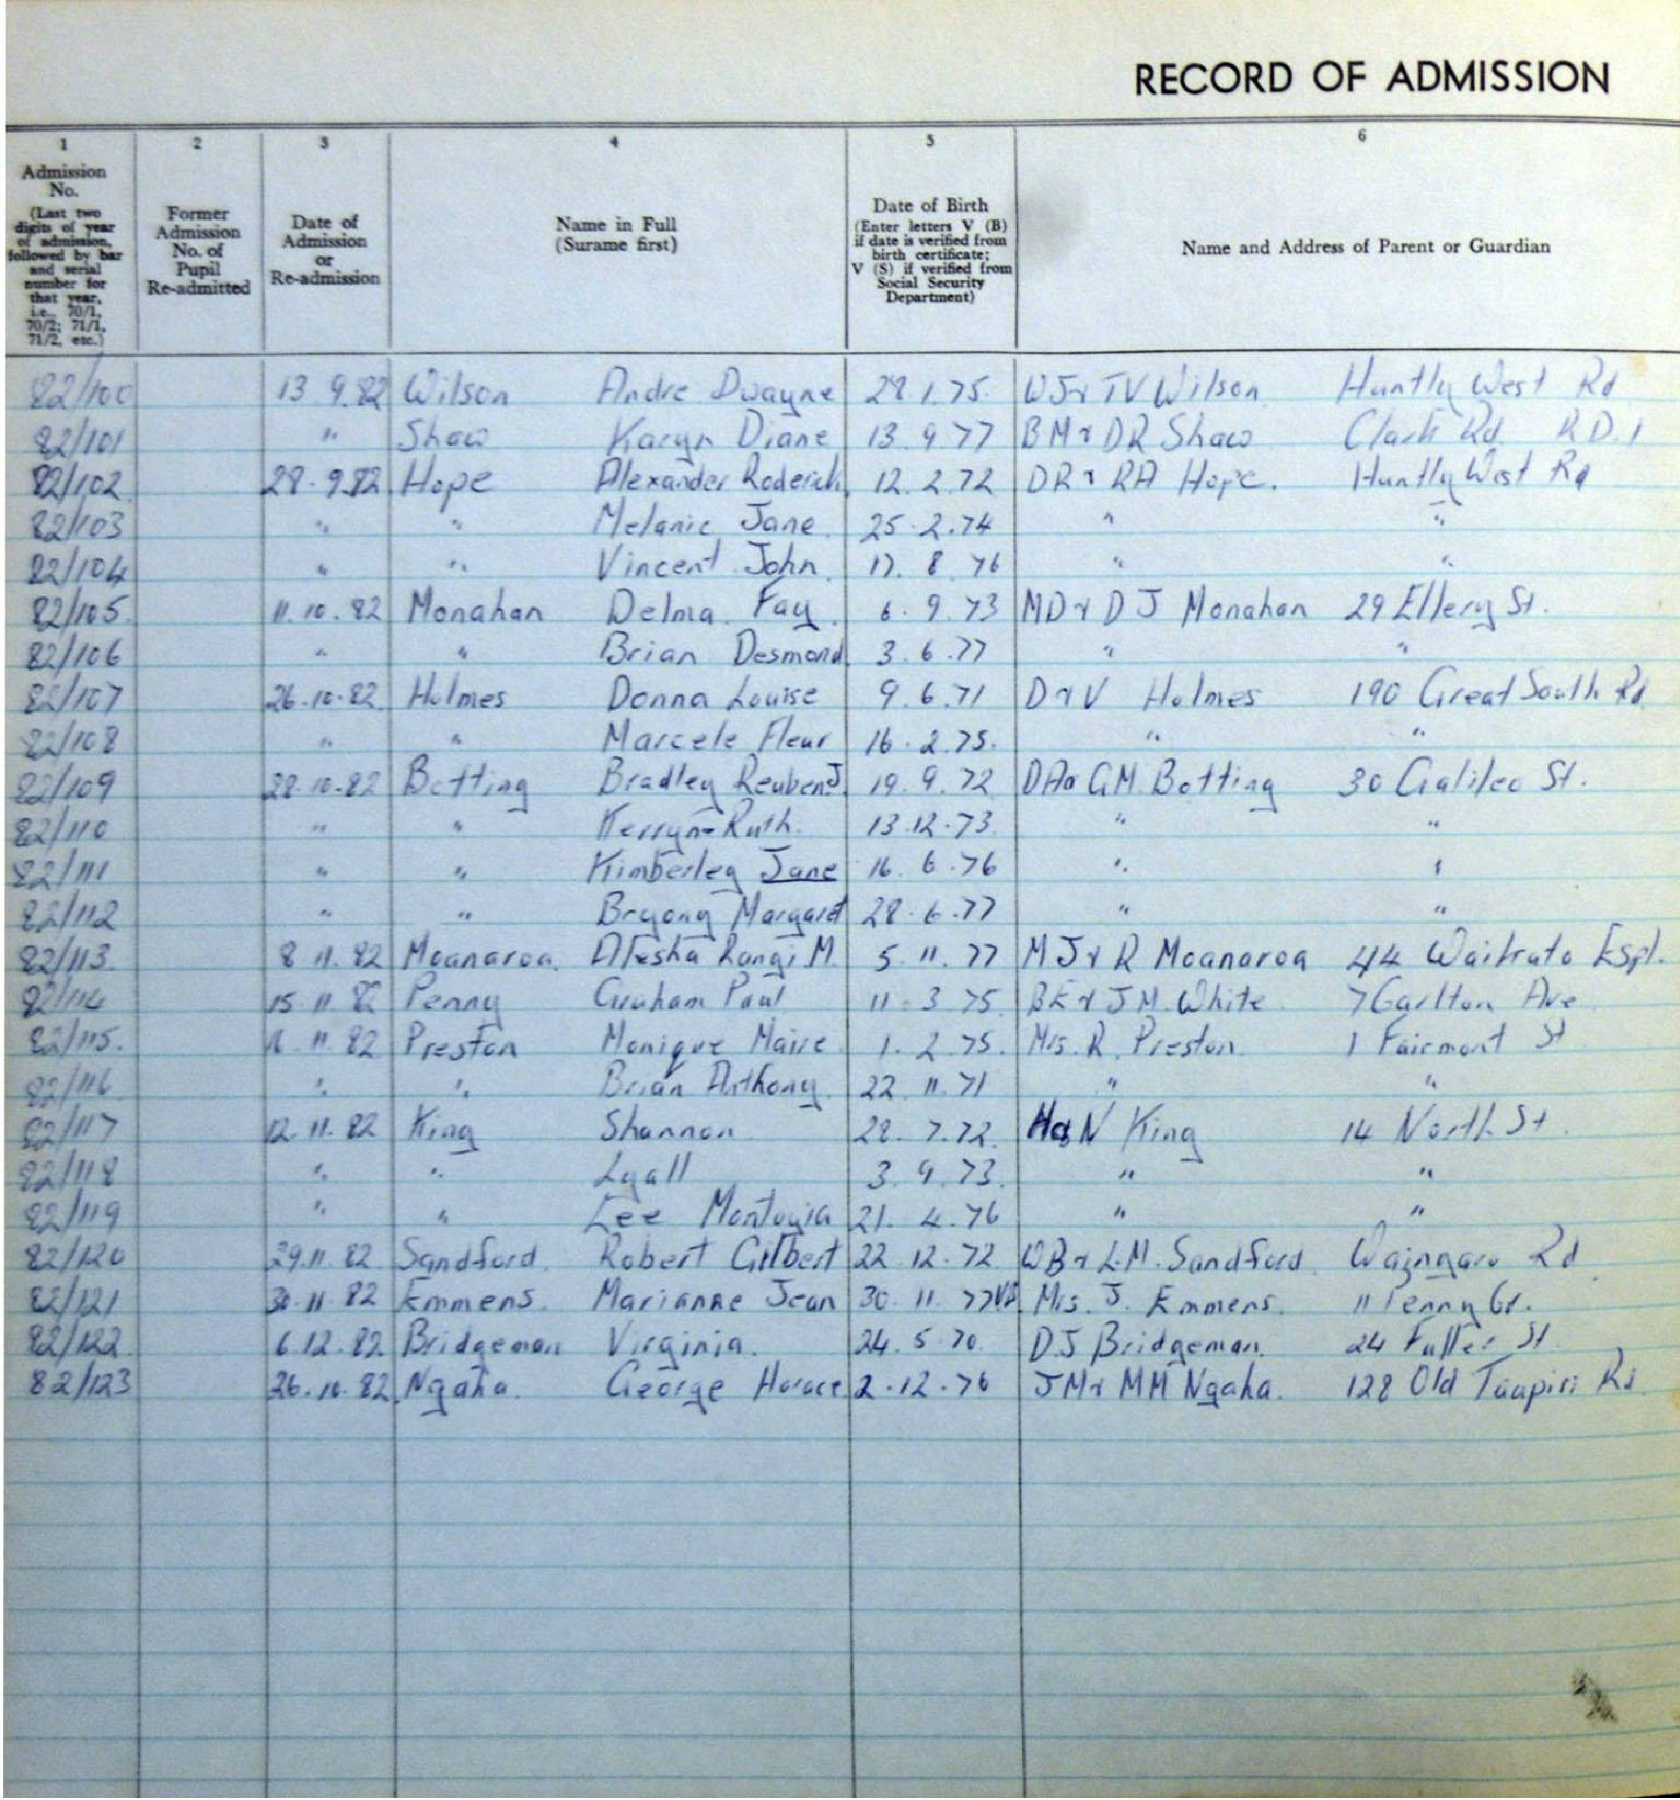 RECORD OF ADMISSION
1 2 3 4 5 6
Admission
No.
(Last two
digits of year
of admission,
followed by bar
and serial
number for
that year,
i.e., 70/1,
70/2; 71/1,
71/2, etc.)
Former
Admission
No. of
Pupil
Re-admitted
Date of
Admission
or
Re-admission
Name in Full
(Surame first)
Date of Birth
(Enter letters V (B)
if date is verified from
birth certificate;
V (S) if verified from
Social Security
Department)
Name and Address of Parent or Guardian
82/100 13.9.82 Wilson Andre Dwayne 28.1.75. WJ & TV Wilson Huntly West Rd
82/101 " Shaw Karyn Diane 13.9.77 BM & DR Shaw Clark Rd. R.D.1
82/102 28.9.82 Hope Alexander Roderick 12.2.72 DR & RA Hope. Huntly West Rd
82/103 " " Melanie Jane 25.2.74 " "
82/104 " " Vincent John 17.8.76 " "
82/105 11.10.82 Monahan Delma Fay 6.9.73 MD & D J Monahan 29 Ellery St.
82/106 " " Brian Desmond 3.6.77 " "
82/107 26.10.82 Holmes Donna Louise 9.6.71 D & V Holmes 190 Great South Rd
82/108 " " Marcele Fleur 16.2.75. " "
82/109 28.10.82 Botting Bradley Reuben J. 19.9.72 DA & GM Botting 30 Galileo St.
82/110 " " Kerryn-Ruth. 13.12.73. " "
82/111 " " Kimberley Jane 16.6.76 " "
82/112 " " Bryony Margaret 28.6.77 " "
82/113. 8.11.82 Moanaroa. Alesha Rangi M. 5.11.77 M J & R Moanaroa 44 Waikato Espl.
82/114 15.11.82 Penny Graham Paul 11.3.75. BE & J M. White 7 Carlton Ave
82/115. 11.11.82 Preston Monique Maire 1.2.75. Mrs. R. Preston. 1 Fairmont St
82/116 " " Brian Anthony. 22.11.71 " "
82/117 12.11.82 King Shannon 28.7.72. N King 14 North St.
82/118 " " Lyall 3.9.73. " "
82/119 " " Lee 21.4.76 " "
82/120 29.11.82 Sandford. Robert Gilbert 22.12.72 WB & L.M. Sandford. Waingaro Rd
82/121 30.11.82 Emmens. Marianne Jean 30.11.77 VB Mrs. J. Emmens. 11 Penny Cr.
82/122 6.12.82 Bridgeman Virginia. 24.5.70. D.J Bridgeman. 24 Fuller St.
82/123 26.10.82 Ngaha. George Horace 2.12.76 JM & MM Ngaha. 128 Old Taupiri Rd.